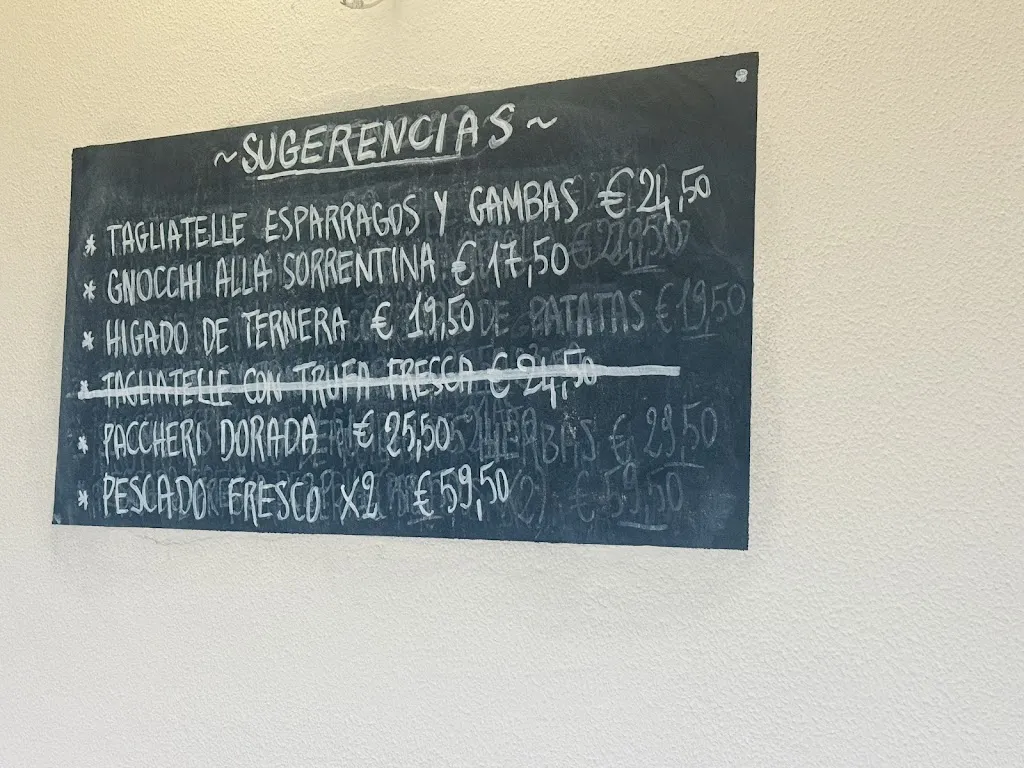 ~SUGERENCIAS~
* TAGLIATELLE ESPARRAGOS Y GAMBAS €24,50
* GNOCCHI ALLA SORRENTINA €17,50
* HIGADO DE TERNERA €19,50 DE PATATAS €19,50
* TAGLIATELLE CON TRUFA FRESCA €24,50
* PACCHERI DORADA €25,50
* PESCADO FRESCO X2 €59,50